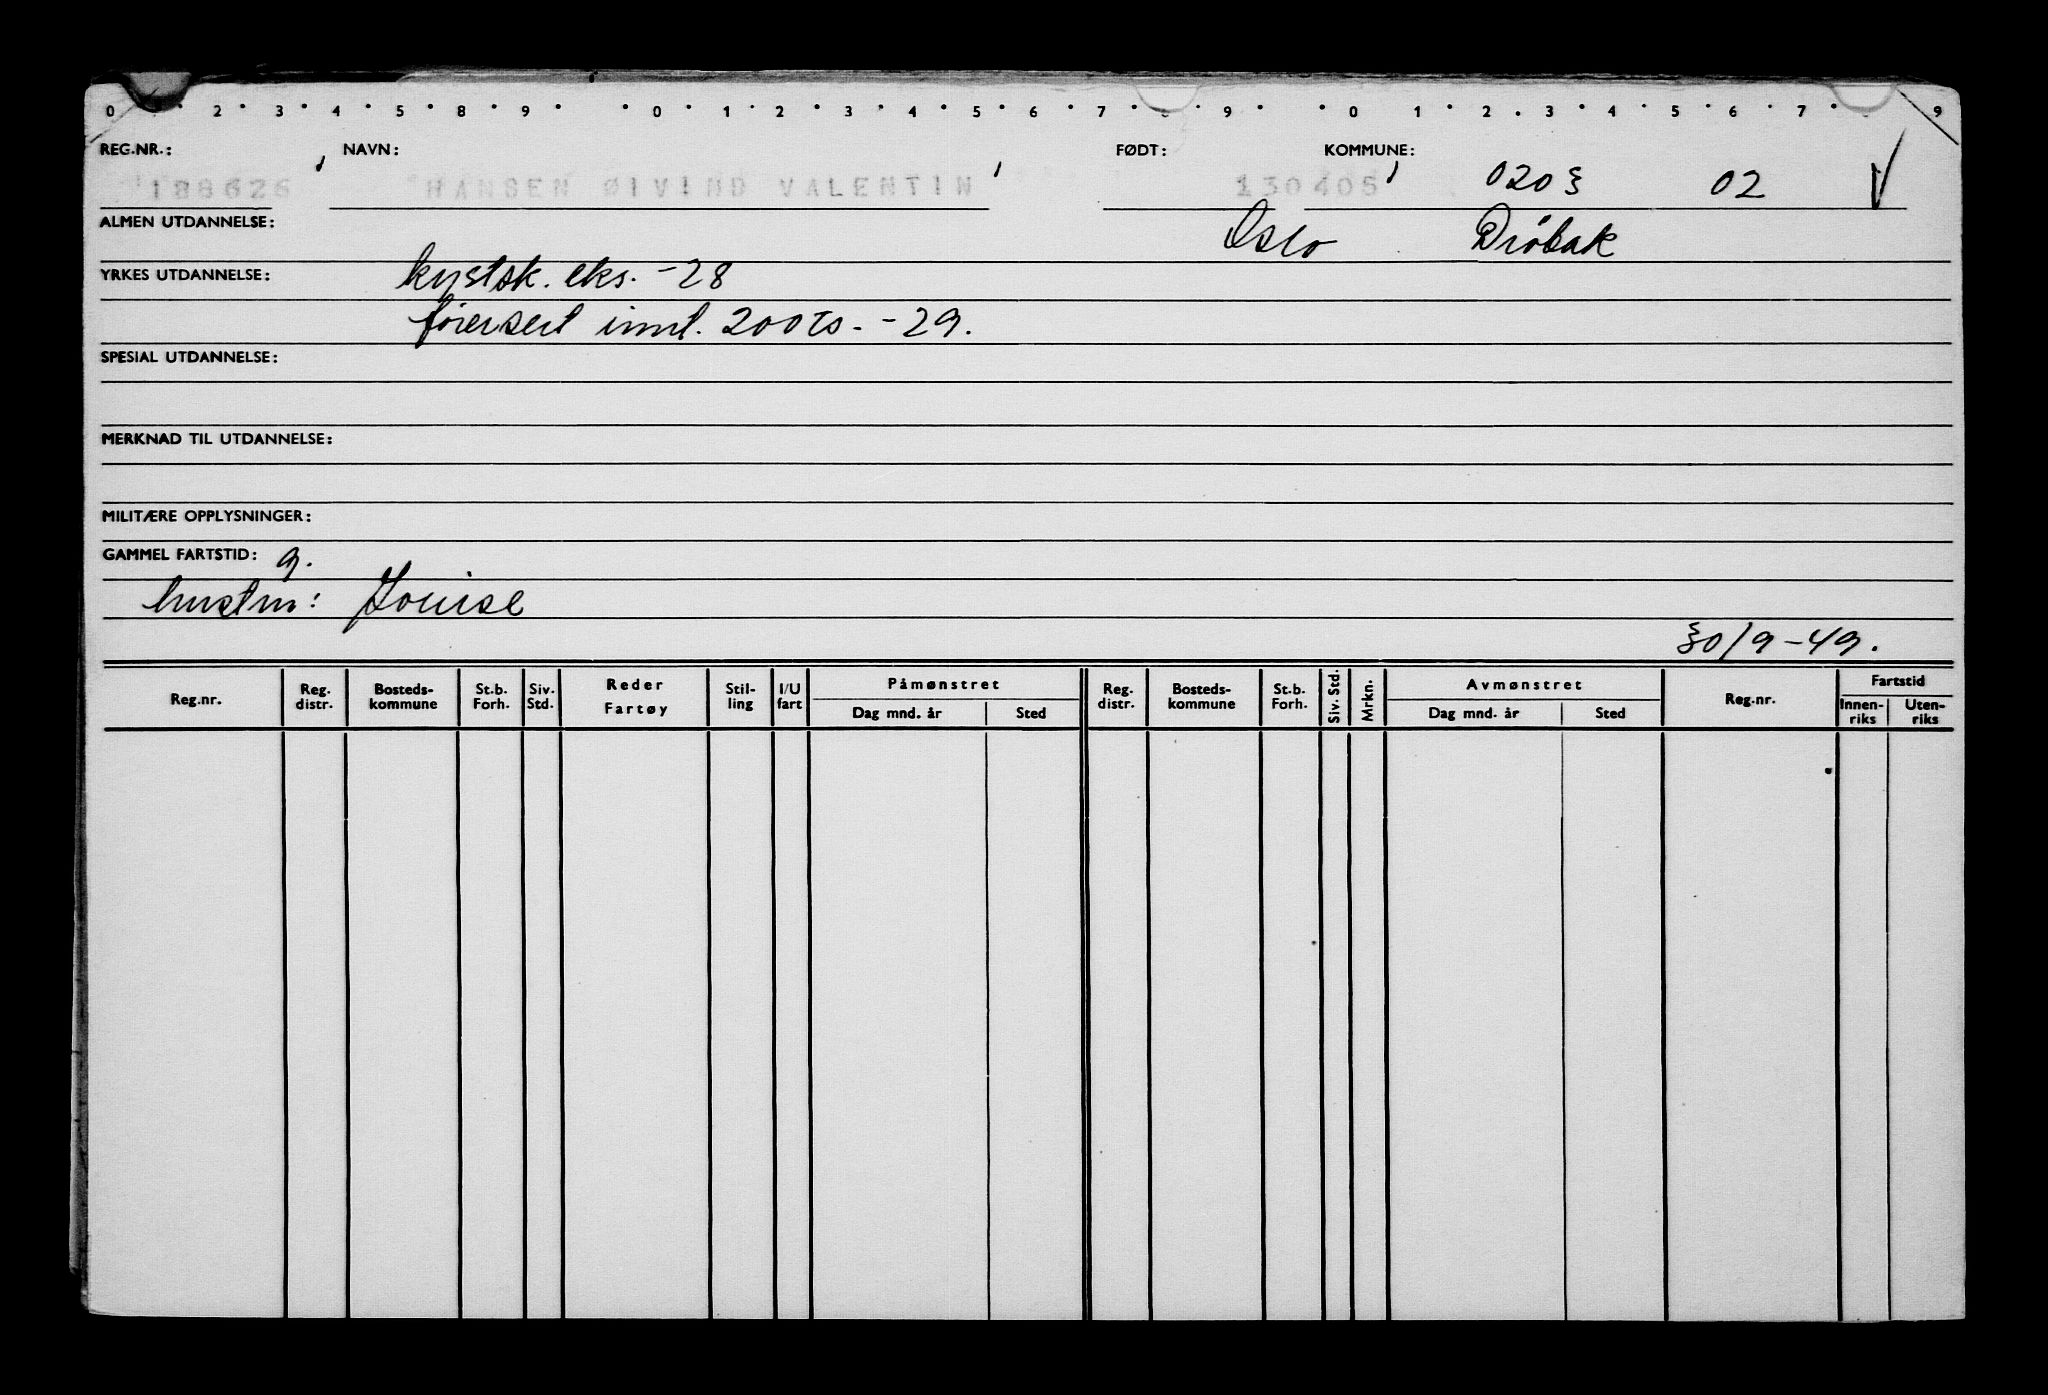 0 2 3 4 5 8 9 0 1 2 3 4 5 6 7 9 0 1 2 3 4 5 6 7 9
REG.NR.: NAVN: FØDT: KOMMUNE:
188626 HANSEN ØIVIND VALENTIN 130405 0203 02
ALMEN UTDANNELSE: Oslo Drøbak
YRKES UTDANNELSE: kystsk. eks. -28
førersert innt. 200 ts. -29.
SPESIAL UTDANNELSE:
MERKNAD TIL UTDANNELSE:
MILITÆRE OPPLYSNINGER:
GAMMEL FARTSTID: 9.
hustru: Louise
30/9-49.
Reg.nr. Reg. distr. Bosteds-kommune St.b. Forh. Siv. Std. Reder Fartøy Stil-ling I/U fart Påmønstret Dag mnd. år Sted Reg. distr. Bosteds-kommune St.b. Forh. Siv. Std. Mrkn. Avmønstret Dag mnd. år Sted Reg.nr. Fartstid Innen-riks Uten-riks